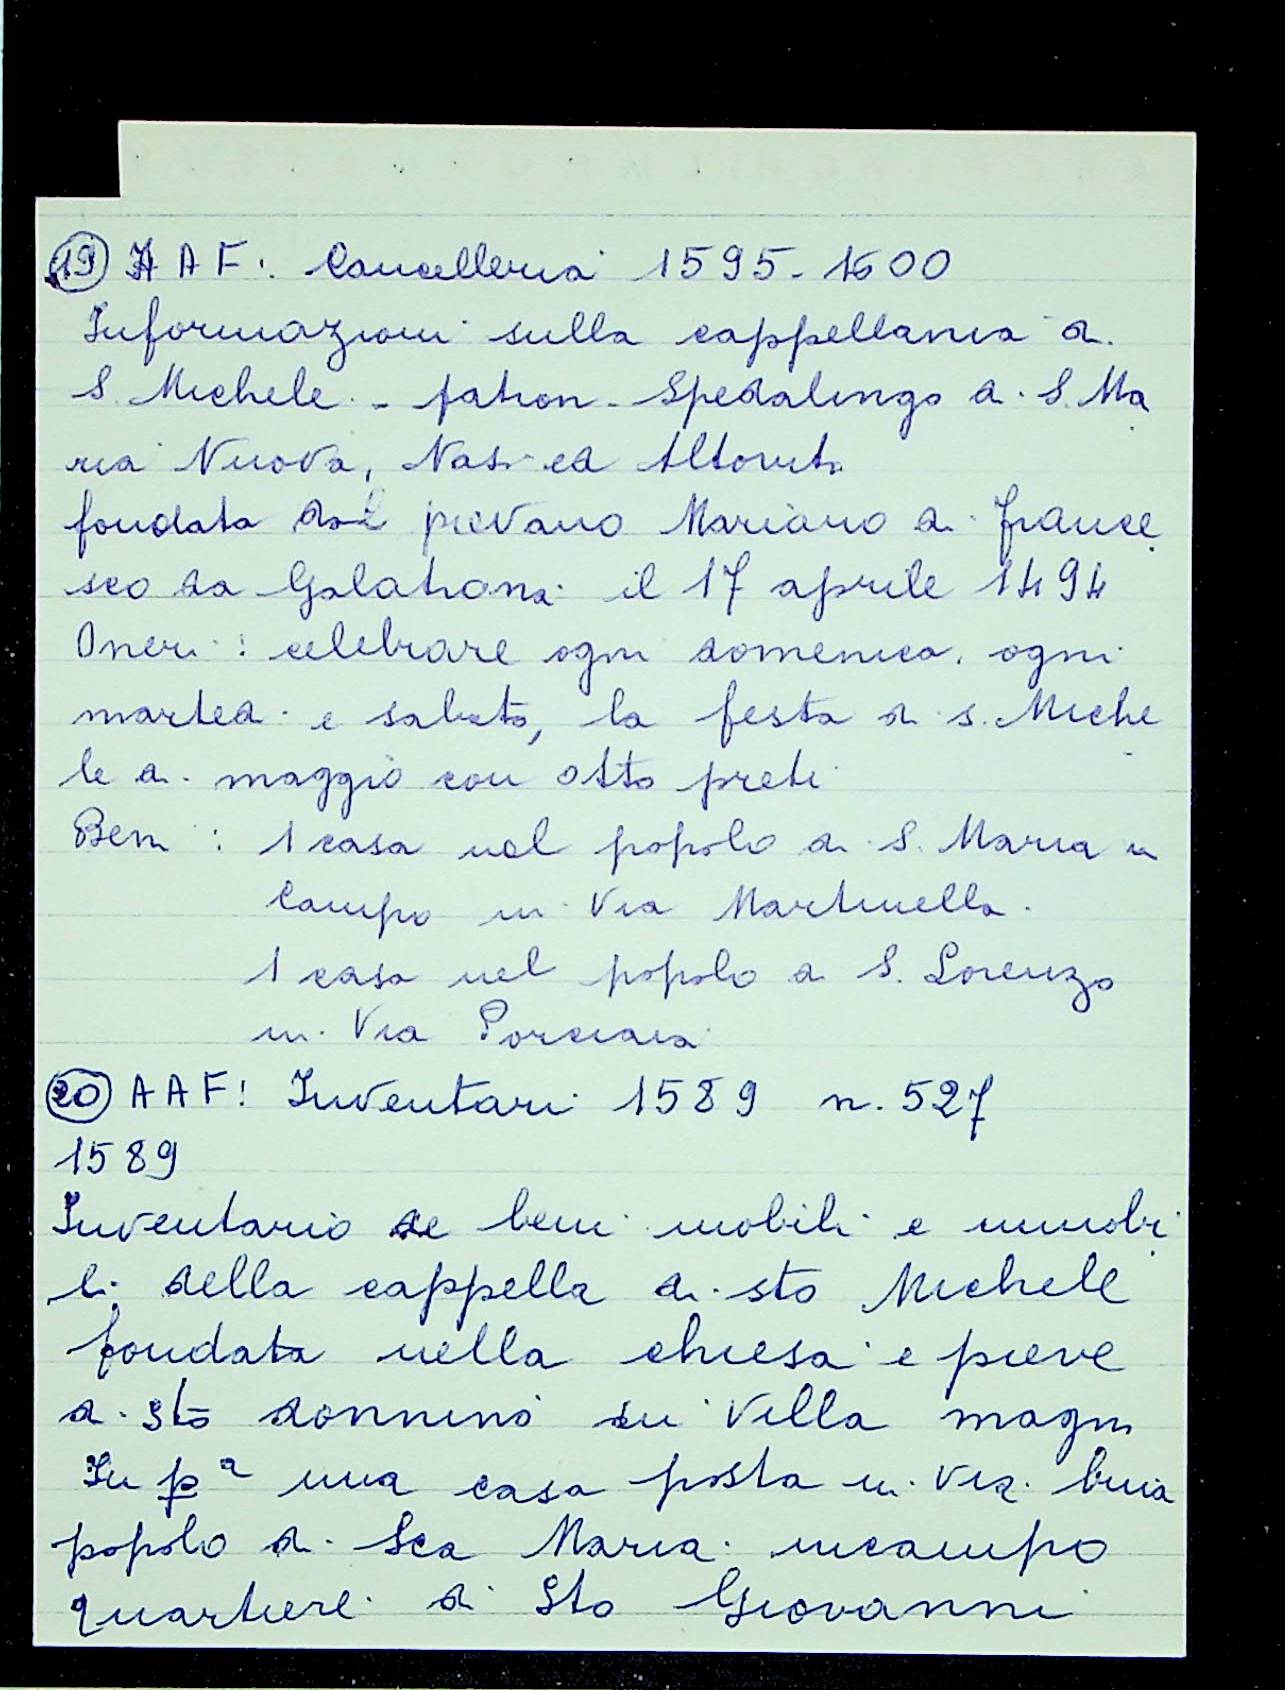 19 AAF: Cancelleria 1595-1600
Informazioni sulla cappellania di
S. Michele - patroni - Spedalingo di S. Ma
ria Nuova, Nasi ed Altoviti
fondata dal pievano Mariano di France
sco da Galatrona il 17 aprile 1494
Oneri: celebrare ogni domenica, ogni
martedì e sabato, la festa di S. Miche
le di maggio con otto preti
Beni: 1 casa nel popolo di S. Maria in
Campo in Via Martinella.
1 casa nel popolo di S. Lorenzo
in Via Porciaia
20 AAF: Inventari 1589 n. 527
1589
Inventario de beni mobili e immobi
li della cappella di sto Michele
fondata nella chiesa e pieve
di sto donnino di Villa magni
In pa una casa posta in via buia
popolo di Sca Maria incampo
quartiere di Sto Giovanni